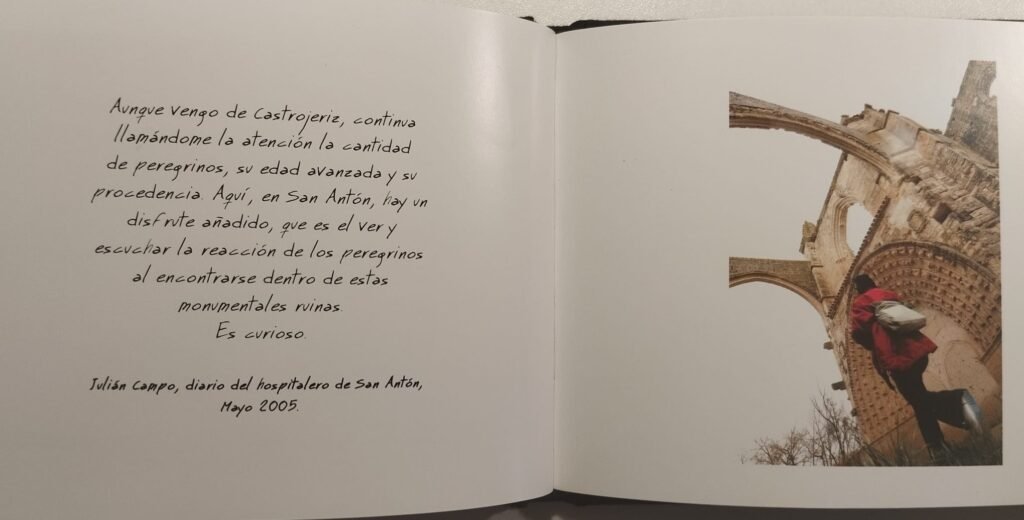 Aunque vengo de Castrojeriz, continua
llamándome la atención la cantidad
de peregrinos, su edad avanzada y su
procedencia. Aquí, en San Antón, hay un
disfrute añadido, que es el ver y
escuchar la reacción de los peregrinos
al encontrarse dentro de estas
monumentales ruinas.
Es curioso.
Julián Campo, diario del hospitalero de San Antón,
Mayo 2005.